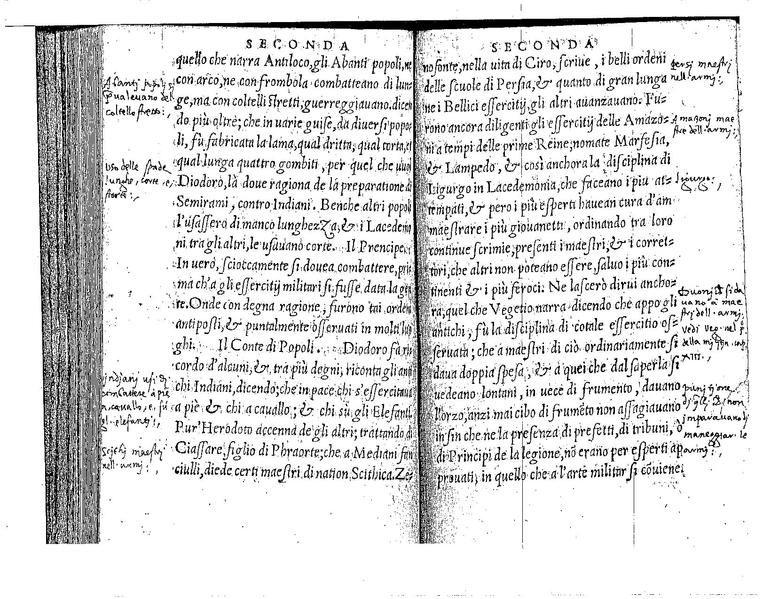 SECONDA
quello che narra Antiloco, gli Abanti popoli, ne
con arco, ne con frombola combatteano di lun-
ge, ma con coltelli stretti, guerreggiauano. dicen
do più oltre; che in uarie guise, da diuersi popo-
li, fù fabricata la lama, qual dritta, qual torta, et
qual lunga quattro gombiti, per quel che
Diodoro, là doue ragiona de la preparatione di
Semirami, contro Indiani. Benche altri popoli
l'usassero di manco lunghezza, & i Lacedemo
ni tra gli altri, le usauano corte. Il Prencipe.
In uero, scioccamente si douea combattere, pri
ma ch'a gli essercitij militari si fusse data la gen
te. Onde con degna ragione, furono tai ordeni
antiposti, & puntalmente osseruati in molti luo
ghi. Il Conte di Popoli. Diodoro fà ri
cordo d'alcuni, &, tra più degni, riconta gli anti
chi Indiani, dicendo; che in pace chi s'essercitaua
a piè & chi a cauallo; & chi sù gli Elefanti.
Pur' Herodoto accenna de gli altri; trattando di
Ciassare, figlio di Phraorte; che a Mediani fan
ciulli, diede certi maestri, di nation Scithica. Ze-
Abanti popoli si
ualeuano del
coltello stretto
Uso delle spade
lunghe, corte, e
torte
Indiani usi di
combattere à piè
a cauallo, e sù
gl' elefanti
maestri
nell'armi
SECONDA
nofonte, nella uita di Ciro, scriue, i belli ordeni
delle scuole di Persia, & quanto di gran lunga
ne i Bellici essercitij, gli altri auanzauano. Fu-
rono ancora diligenti gli essercitij delle Amazo-
ni a tempi delle prime Reine; nomate Marfesia,
& Lampedo, & così anchora la disciplina di
Ligurgo in Lacedemonia, che faceano i più at-
tempati, & pero i più esperti haueàn cura d'am
maestrare i più giouanetti, ordinando tra loro
continue scrimie, presenti i maestri, & i corret-
tori, che altri non poteano essere, saluo i più con-
tinenti & i più feroci. Ne lascerò dirui ancho-
ra, quel che Vegetio narra dicendo che appo gli
antichi, fù la disciplina di cotale essercitio os-
seruata; che a maestri di ciò ordinariamente si
daua doppia spesa, & a quei che dal saperla si
uedeano lontani, in uece di frumento, dauano
l'orzo, anzi mai cibo di frumeto non assagiauano
in fin che ne la presenza di prefetti, di tribuni, o
di Principi de la legione, nō erano per esperti ap
prouati, in quello che a l'arte militar si cōuiene.
maestri
nell'armi
Amazoni mae
stre dell'armi
Ligurgo
mae
stri dell'armi
XIII
non
imparauano
maneggiar le
armi